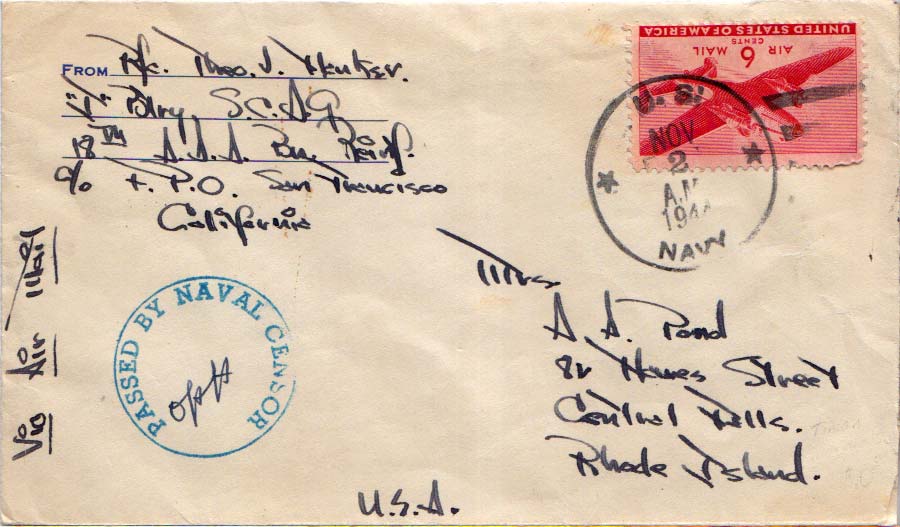 FROM Pfc. Theo. J.
"I" Btry, S.C.A.G.
18TH A.A.A. Bn. Reinf.
c/o F.P.O. San Francisco
California
UNITED STATES OF AMERICA
AIR 6 MAIL
CENTS
U.S.
NOV
2
A.M.
1944
NAVY
Via Air Mail
PASSED BY NAVAL CENSOR
Mrs
A. A. Pond
82 Street
Central Falls.
Rhode Island.
U.S.A.